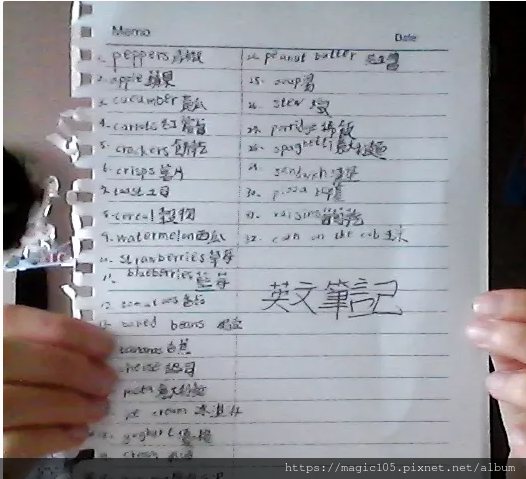 Memo Date
1. peppers
2. apple 蘋果
3. cucumber 黃瓜
4. carrots 紅蘿蔔
5. crackers 餅乾
6. crisps 薯片
7. toast 土司
8. cereal 穀物
9. watermelon 西瓜
10. strawberries 草莓
11. blueberries 藍莓
12.
13. baked beans
bananas 香蕉
cheese 起司
pasta 意大利麵
ice cream 冰淇淋
yoghurt 優格
cream
24. peanut butter
25. soup 湯
26. stew
27. porridge
28. spaghetti 意大利麵
29. sandwich
30. pizza
31. raisins 葡萄乾
32. corn on the cob 玉米
英文筆記
https://magic105.pixnet.net/album